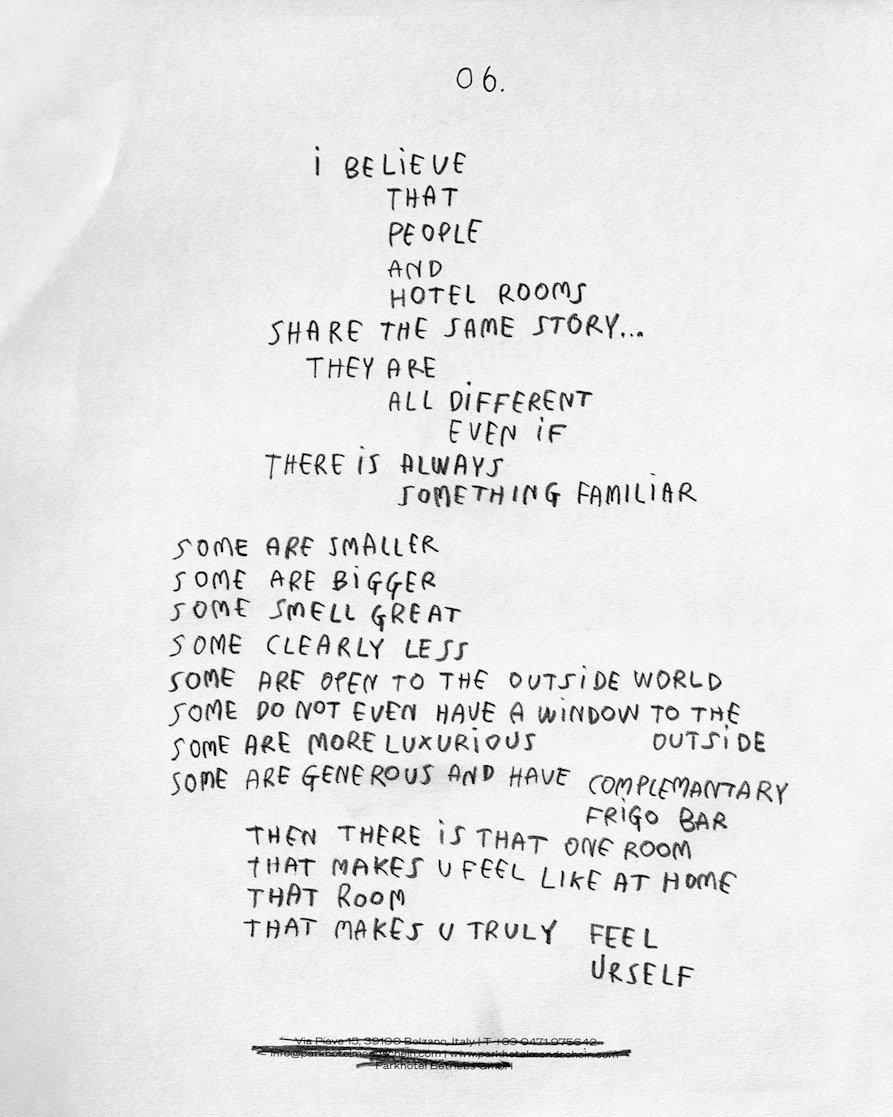 06.
i BELiEVE
THAT
PEOPLE
AND
HOTEL ROOMS
SHARE THE SAME STORY...
THEY ARE
ALL DiFFERENT
EVEN iF
THERE iS ALWAYS
SOMETHING FAMiLiAR
SOME ARE SMALLER
SOME ARE BiGGER
SOME SMELL GREAT
SOME CLEARLY LESS
SOME ARE OPEN TO THE OUTSiDE WORLD
SOME DO NOT EVEN HAVE A WiNDOW TO THE
OUTSiDE
SOME ARE MORE LUXURiOUS
SOME ARE GENEROUS AND HAVE COMPLEMANTARY
FRiGO BAR
THEN THERE iS THAT ONE ROOM
THAT MAKES U FEEL LIKE AT HOME
THAT ROOM
THAT MAKES U TRULY FEEL
URSELF
Via Piave 15, 39100 Bolzano, Italy | T +39 0471 975642
info@parkhotelmondschein.com | www.parkhotelmondschein.com
Parkhotel Betriebs GmbH